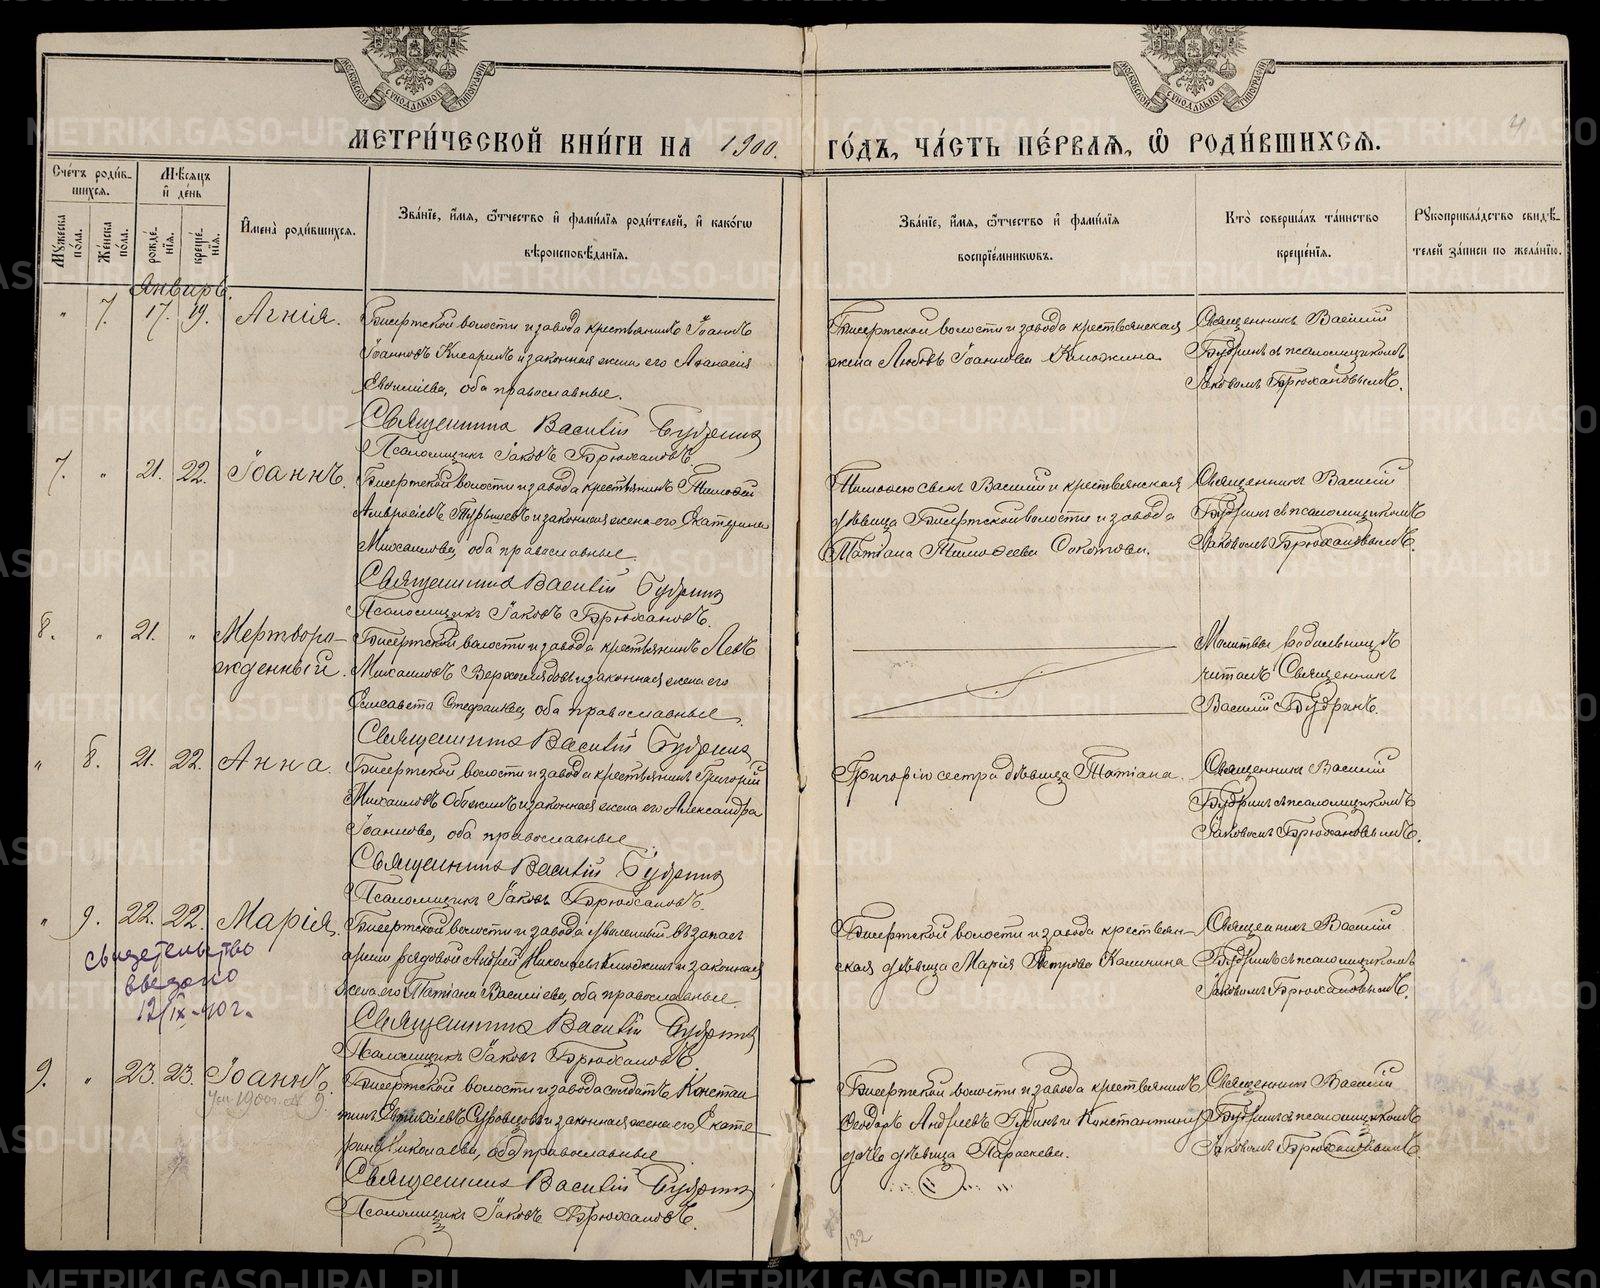 МЕТРИ́ЧЕСКОЙ КНИ́ГИ НА 1900. ГО́ДЪ, ЧА́СТЬ ПЕ́РВАѦ, Ѡ҆ РОДИ́ВШИХСѦ.
4
Сче́тъ роди́в-
шихсѧ.
Мѣ́сѧцъ
и҆ де́нь
Мꙋ́жеска по́ла.
Же́нска по́ла.
рожде́нїѧ.
креще́нїѧ.
И҆мена̀ роди́вшихсѧ.
Зва́нїе, и҆́мѧ, ѻ҆́тчество и҆ фами́лїѧ роди́телей, и҆ како́гѡ
вѣроисповѣ́данїѧ.
Зва́нїе, и҆́мѧ, ѻ҆́тчество и҆ фами́лїѧ
воспрїе́мникѡвъ.
Кто̀ соверша́лъ та́инство
креще́нїѧ.
Рꙋкоприкла́дство свидѣ́-
телей за́писи по жела́нїю.
Январь.
" 7. 17. 19. Агнія.
Бисертской волости и завода крестьянинъ Іоаннъ
Іоанновъ Кисаринъ и законная жена его Аѳанасія
Евѳиміева, оба православные.
Священникъ Василій Будринъ
Псаломщикъ Іаковъ Брюхановъ.
Бисертской волости и завода крестьянская
жена Любовь Іоаннова Клюжина.
Священникъ Василій
Будринъ съ псаломщикомъ
Іаковомъ Брюхановымъ.
7. " 21. 22. Іоаннъ.
Бисертской волости и завода крестьянинъ Тимоѳей
Амвросіевъ Турышевъ и законная жена его Екатерина
Михаилова, оба православные.
Священникъ Василій Будринъ
Псаломщикъ Іаковъ Брюхановъ.
Тимоѳею сынъ Василій и крестьянская
дѣвица Бисертской волости и завода
Татіана Тимоѳеева
Священникъ Василій
Будринъ съ псаломщикомъ
Іаковомъ Брюхановымъ.
8. " 21. " Мертворо-
жденный.
Бисертской волости и завода крестьянинъ Левъ
Михаиловъ и законная жена его
Елисавета Стефанова, оба православные.
Священникъ Василій Будринъ
Молитвы родильницѣ
читалъ Священникъ
Василій Будринъ.
" 8. 21. 22. Анна.
Бисертской волости и завода крестьянинъ Григорій
Михаиловъ и законная жена его Александра
Іоаннова, оба православные.
Священникъ Василій Будринъ
Псаломщикъ Іаковъ Брюхановъ.
Григорія сестра дѣвица Татіана.
Священникъ Василій
Будринъ съ псаломщикомъ
Іаковомъ Брюхановымъ.
" 9. 22. 22. Марія.
свидетельство
выдано
12/IX-40 г.
Бисертской волости и завода уволенный въ запасъ
арміи рядовой Андрей Николаевъ Клюжинъ и законная
жена его Татіана Василіева, оба православные.
Священникъ Василій Будринъ
Псаломщикъ Іаковъ Брюхановъ.
Бисертской волости и завода крестьян-
ская дѣвица Марія Петрова Калинина
Священникъ Василій
Будринъ съ псаломщикомъ
Іаковомъ Брюхановымъ.
9. " 23. 23. Іоаннъ.
Ум 1900 г. № 9.
Бисертской волости и завода солдатъ Констан
тинъ Евѳиміевъ Суровцовъ и законная жена его Екате-
рина Николаева, оба православные
Священникъ Василій Будринъ
Псаломщикъ Іаковъ Брюхановъ.
Бисертской волости и завода крестьянинъ
Ѳеодоръ Андреевъ Губинъ и Константина
дочь дѣвица Параскева.
Священникъ Василій
Будринъ съ псаломщикомъ
Іаковомъ Брюхановымъ.
132
METRIKI.GASO-URAL.RU